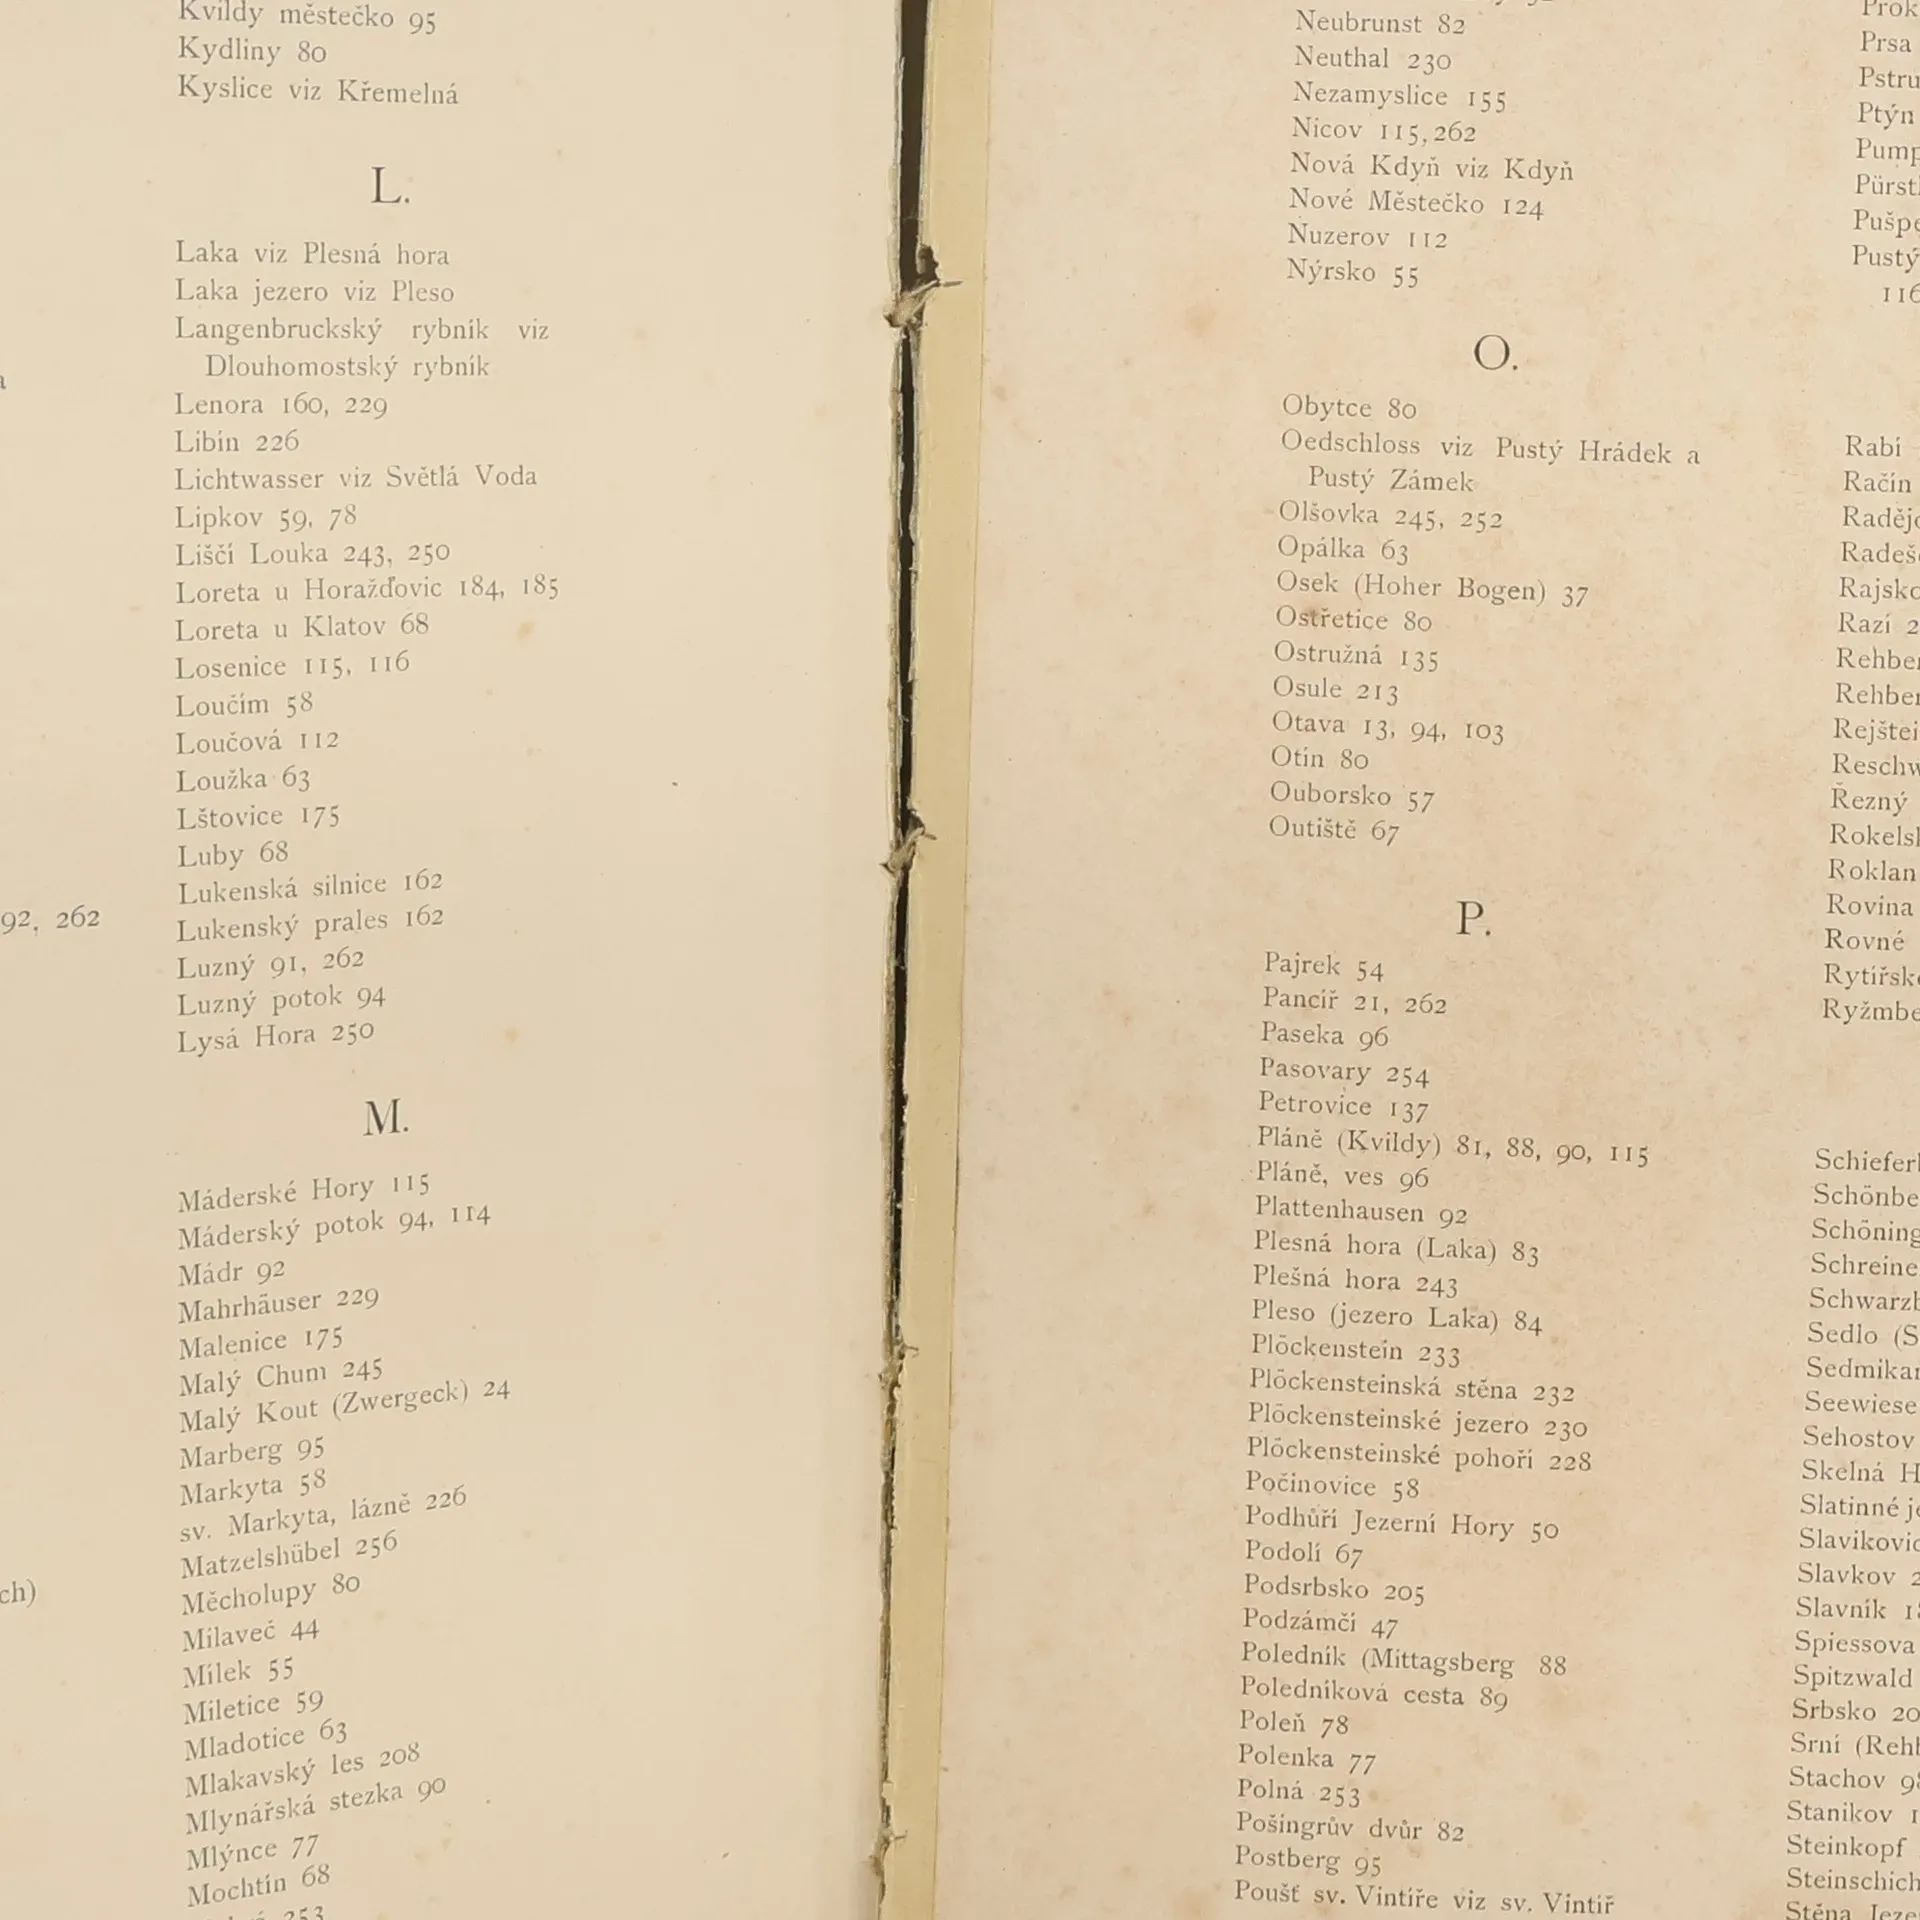 92, 262
ch)
Kvildy městečko 95
Kydliny 80
Kyslice viz Křemelná
L.
Laka viz Plesná hora
Laka jezero viz Pleso
Langenbruckský rybník viz
Dlouhomostský rybník
Lenora 160, 229
Libín 226
Lichtwasser viz Světlá Voda
Lipkov 59, 78
Liščí Louka 243, 250
Loreta u Horažďovic 184, 185
Loreta u Klatov 68
Losenice 115, 116
Loučím 58
Loučová 112
Loužka 63
Lštovice 175
Luby 68
Lukenská silnice 162
Lukenský prales 162
Luzný 91, 262
Luzný potok 94
Lysá Hora 250
M.
Máderské Hory 115
Máderský potok 94, 114
Mádr 92
Mahrhäuser 229
Malenice 175
Malý Chum 245
Malý Kout (Zwergeck) 24
Marberg 95
Markyta 58
sv. Markyta, lázně 226
Matzelshübel 256
Měcholupy 80
Milaveč 44
Mílek 55
Miletice 59
Mladotice 63
Mlakavský les 208
Mlynářská stezka 90
Mlýnce 77
Mochtín 68
253
Neubrunst 82
Neuthal 230
Nezamyslice 155
Nicov 115, 262
Nová Kdyň viz Kdyň
Nové Městečko 124
Nuzerov 112
Nýrsko 55
O.
Obytce 80
Oedschloss viz Pustý Hrádek a
Pustý Zámek
Olšovka 245, 252
Opálka 63
Osek (Hoher Bogen) 37
Ostřetice 80
Ostružná 135
Osule 213
Otava 13, 94, 103
Otín 80
Ouborsko 57
Outiště 67
P.
Pajrek 54
Pancíř 21, 262
Paseka 96
Pasovary 254
Petrovice 137
Pláně (Kvildy) 81, 88, 90, 115
Pláně, ves 96
Plattenhausen 92
Plesná hora (Laka) 83
Plešná hora 243
Pleso (jezero Laka) 84
Plöckenstein 233
Plöckensteinská stěna 232
Plöckensteinské jezero 230
Plöckensteinské pohoří 228
Počinovice 58
Podhůří Jezerní Hory 50
Podolí 67
Podsrbsko 205
Podzámčí 47
Poledník (Mittagsberg 88
Poledníková cesta 89
Poleň 78
Polenka 77
Polná 253
Pošingrův dvůr 82
Postberg 95
Poušť sv. Vintíře viz sv. Vintíř
Prok
Prsa
Pstru
Ptýn
Pump
Pürstl
Pušpe
Pustý
116
Rabí
Račín
Radějo
Radeš
Rajsko
Razí 2
Rehber
Rehber
Rejštei
Reschw
Řezný
Rokelsk
Roklan
Rovina
Rovné
Rytířsk
Ryžmbe
Schiefer
Schönbe
Schöning
Schreine
Schwarzb
Sedlo (S
Sedmikar
Seewiese
Sehostov
Skelná H
Slatinné je
Slavikovic
Slavkov 2
Slavník 18
Spiessova
Spitzwald
Srbsko 20
Srní (Reh
Stachov 98
Stanikov 1
Steinkopf
Steinschich
Stěna Jeze